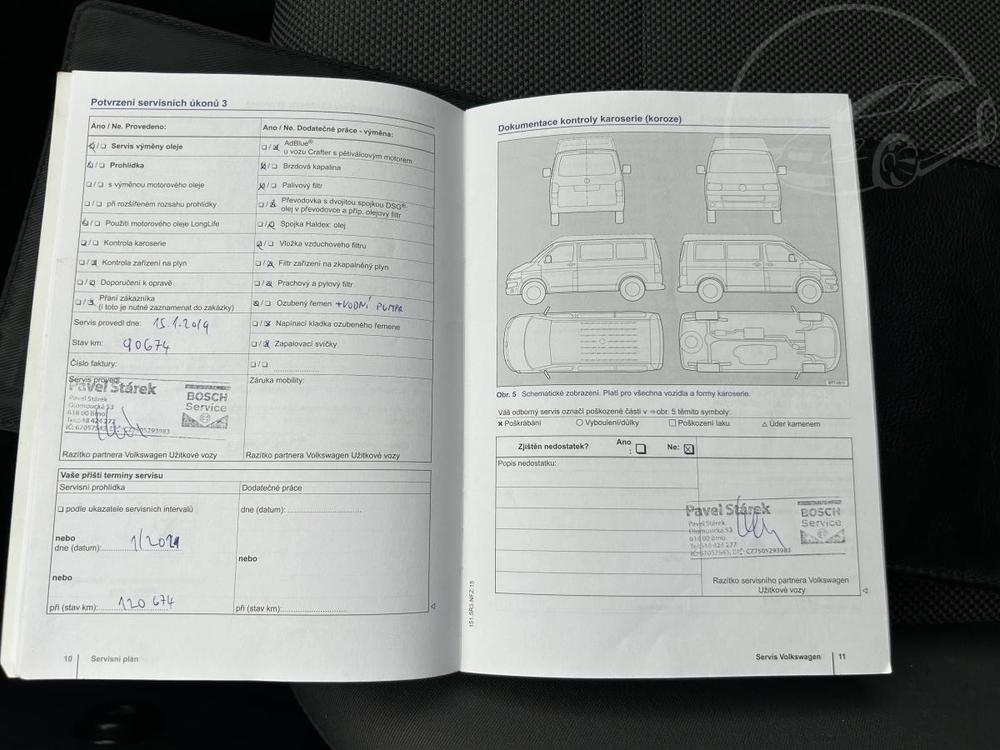 Potvrzení servisních úkonů 3
Ano / Ne. Provedeno:
Servis výměny oleje
Prohlídka
s výměnou motorového oleje
při rozšířeném rozsahu prohlídky
Použití motorového oleje LongLife
Kontrola karoserie
Kontrola zařízení na plyn
Doporučení k opravě
Přání zákazníka
(i toto je nutné zaznamenat do zakázky)
Servis provedl dne: 15.1.2019
Stav km: 90674
Číslo faktury:
Servis provedl:
Pavel Stárek
Pavel Stárek
Olomoucká 53
618 00 Brno
BOSCH
Service
Razítko partnera Volkswagen Užitkové vozy
Ano / Ne. Dodatečné práce - výměna:
AdBlue®
u vozu Crafter s pětiválcovým motorem
Brzdová kapalina
Palivový filtr
Převodovka s dvojitou spojkou DSG®:
olej v převodovce a příp. olejový filtr
Spojka Haldex: olej
Vložka vzduchového filtru
Filtr zařízení na zkapalněný plyn
Prachový a pylový filtr
Ozubený řemen +VODNÍ PUMPA
Napínací kladka ozubeného řemene
Zapalovací svíčky
Záruka mobility:
Razítko partnera Volkswagen Užitkové vozy
Vaše příští termíny servisu
Servisní prohlídka
podle ukazatele servisních intervalů
nebo
dne (datum): 1/2021
nebo
při (stav km): 120 674
Dodatečné práce
dne (datum):
nebo
při (stav km):
10 Servisní plán
Dokumentace kontroly karoserie (koroze)
Obr. 5 Schematické zobrazení. Platí pro všechna vozidla a formy karoserie.
Váš odborný servis označí poškozené části v ⇒ obr. 5 těmito symboly:
× Poškrábání ○ Vyboulení/důlky □ Poškození laku △ Úder kamenem
Zjištěn nedostatek? Ano : Ne:
Popis nedostatku:
Pavel Stárek
Pavel Stárek
Olomoucká 53
618 00 Brno
Tel.: 548 424 277
IČ: 67057543, DIČ: CZ7505293983
BOSCH
Service
Razítko servisního partnera Volkswagen
Užitkové vozy
151.5R3.NFZ.15
Servis Volkswagen 11